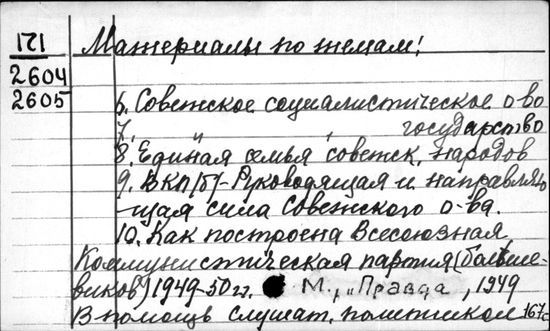 171 Материалы по темам:
2604
2605 6. Советское социалистическое о-во
7. " " государство
8. Единая семья советск. народов
9. ВКП/б/-Руководящая и направляю-
щая сила Советского о-ва.
10. Как построена Всесоюзная
Коммунистическая партия (больше-
виков) 1949-50 гг. М., "Правда, 1949
В помощь слушат. политшкол 167 с